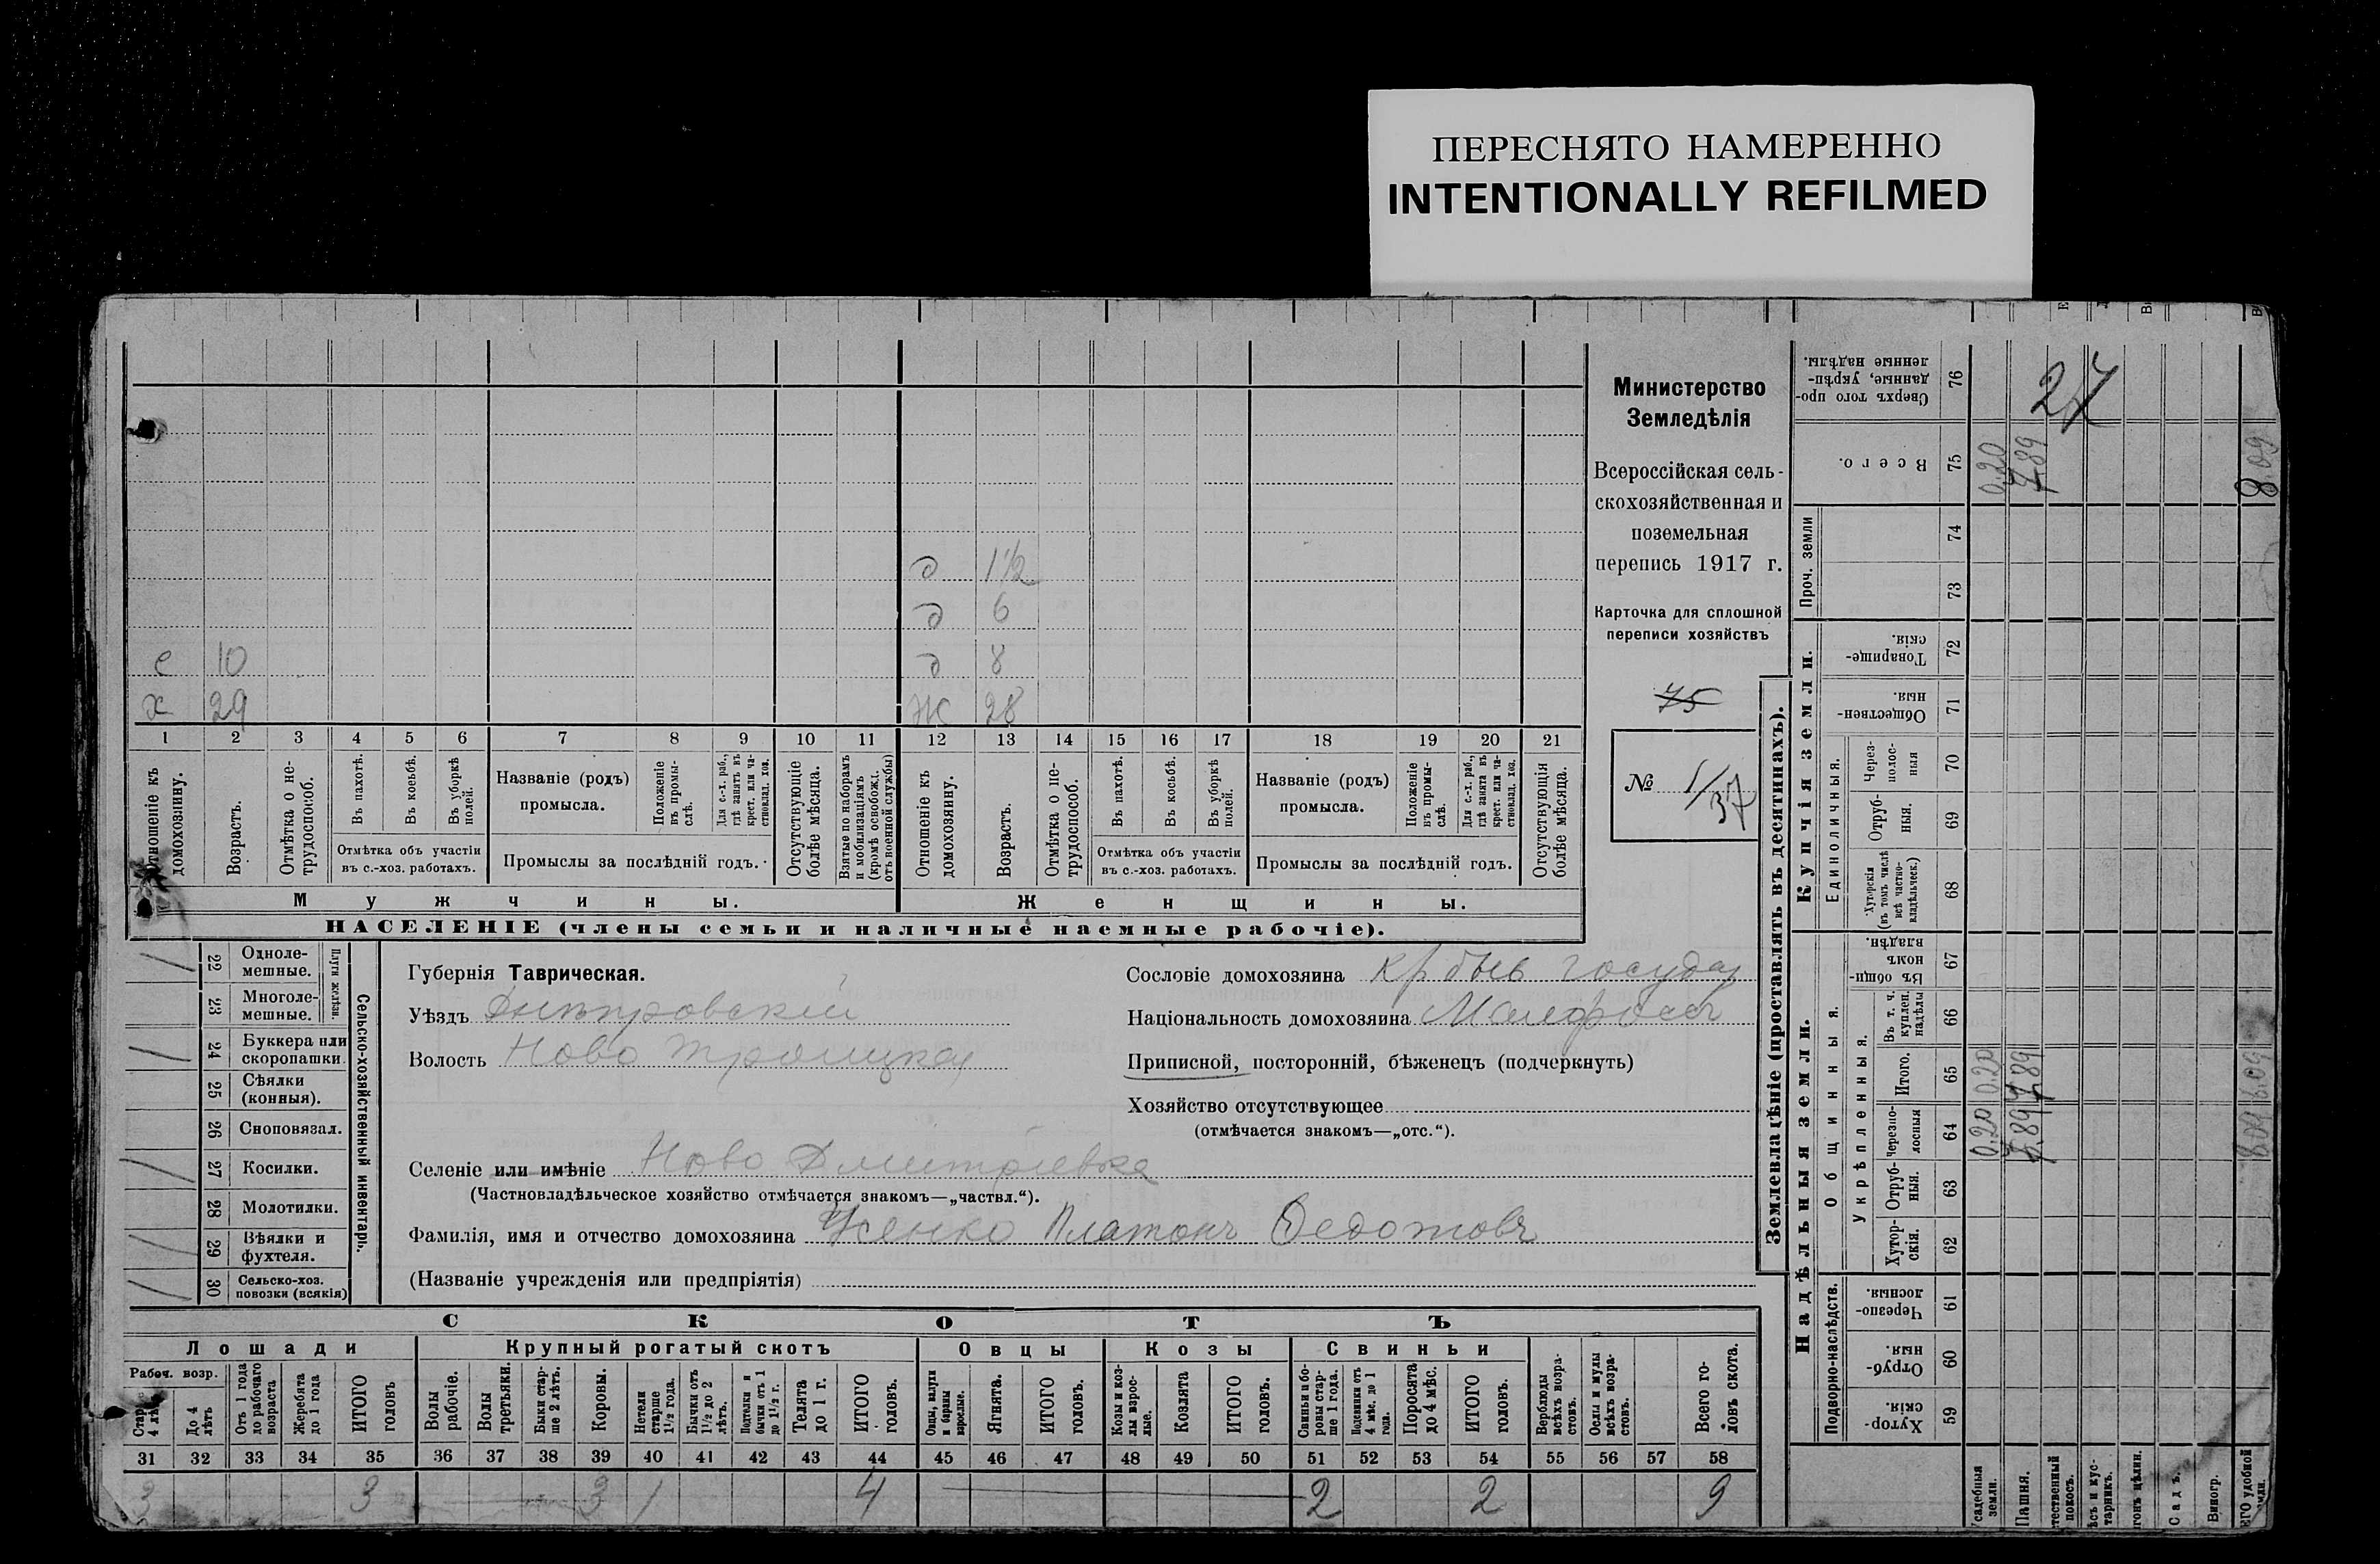 ПЕРЕСНЯТО НАМЕРЕННО
INTENTIONALLY REFILMED
Министерство
Земледѣлія
Всероссійская сель-
скохозяйственная и
поземельная
перепись 1917 г.
Карточка для сплошной
переписи хозяйствъ
75
№ 1/37
д 1½
д 6
с 10 д 8
х 29 ж 28
1 2 3 4 5 6 7 8 9 10 11 12 13 14 15 16 17 18 19 20 21
Отношеніе къ домохозяину.
Возрастъ.
Отмѣтка о не-трудоспособ.
Въ пахотѣ.
Въ косьбѣ.
Въ уборкѣ полей.
Отмѣтка объ участіи
въ с.-хоз. работахъ.
Названіе (родъ)
промысла.
Положеніе въ промы-слѣ.
Для с.-х. раб., гдѣ занятъ въ крест. или ча-стновлад. хоз.
Промыслы за послѣдній годъ.
Отсутствующіе болѣе мѣсяца.
Взятые по наборамъ и мобилизаціямъ (кромѣ освобожд. отъ военной службы)
Отношеніе къ домохозяину.
Возрастъ.
Отмѣтка о не-трудоспособ.
Въ пахотѣ.
Въ косьбѣ.
Въ уборкѣ полей.
Отмѣтка объ участіи
въ с.-хоз. работахъ.
Названіе (родъ)
промысла.
Положеніе въ промы-слѣ.
Для с.-х. раб., гдѣ занята въ крест. или ча-стновлад. хоз.
Промыслы за послѣдній годъ.
Отсутствующія болѣе мѣсяца.
Мужчины. Женщины.
НАСЕЛЕНІЕ (члены семьи и наличные наемные рабочіе).
Сельско-хозяйственный инвентарь.
Плуги желѣзн.
22 Одноле-мешные. /
23 Многоле-мешные.
24 Буккера или скоропашки. /
25 Сѣялки (конныя).
26 Сноповязал.
27 Косилки. /
28 Молотилки.
29 Вѣялки и фухтеля. /
30 Сельско-хоз. повозки (всякія) /
Губернія Таврическая.
Уѣздъ Днѣпровскій
Волость Ново Троицкая
Селеніе или имѣніе Ново Дмитріевка
(Частновладѣльческое хозяйство отмѣчается знакомъ—„частвл.“).
Фамилія, имя и отчество домохозяина Усенко Платонъ Федотовъ
(Названіе учрежденія или предпріятія)
Сословіе домохозяина кр быв государ
Національность домохозяина Малороссъ
Приписной, посторонній, бѣженецъ (подчеркнуть)
Хозяйство отсутствующее
(отмѣчается знакомъ—„отс.“).
СКОТЪ
Лошади Крупный рогатый скотъ Овцы Козы Свиньи
Рабоч. возр.
Стар. 4 лѣтъ
До 4 лѣтъ
Отъ 1 года до рабочаго возраста
Жеребята до 1 года
ИТОГО головъ
Волы рабочіе.
Волы третьяки.
Быки стар-ше 2 лѣтъ.
Коровы.
Нетели старше 1½ года.
Бычки отъ 1½ до 2 лѣтъ.
Подтелки и бычки отъ 1 до 1½ г.
Телята до 1 г.
ИТОГО головъ.
Овцы, валухи и бараны взрослые.
Ягнята.
ИТОГО головъ.
Козы и коз-лы взрос-лые.
Козлята
ИТОГО головъ.
Свиньи и бо-ровы стар-ше 1 года.
Подсвинки отъ 4 мѣс. до 1 года.
Поросята до 4 мѣс.
ИТОГО головъ.
Верблюды всѣхъ возра-стовъ.
Ослы и мулы всѣхъ возра-стовъ.
Всего го-ловъ скота.
31 32 33 34 35 36 37 38 39 40 41 42 43 44 45 46 47 48 49 50 51 52 53 54 55 56 57 58
3 3 3 1 4 2 2 9
Землевладѣніе (проставлять въ десятинахъ).
Купчія земли.
Надѣльныя земли.
Сверхъ того про-данные, укрѣп-ленные надѣлы. 76
27
Всего. 75
0,20 7,89 8.09
Проч. земли 74
73
Товарище-скія. 72
Обществен-ныя. 71
Единоличныя.
Через-полос-ныя 70
Отруб-ныя. 69
Хуторскія (въ томъ числѣ всѣ частно-владѣльческ.) 68
Общинныя.
Въ общи-номъ владѣн. 67
Укрѣпленныя.
Въ т. ч. куплен. надѣлы 66
Итого. 65
0.20 7.89 8.09
Черезпо-лосныя 64
0.20 7.89 8.09
Отруб-ныя. 63
Хутор-скія. 62
Подворно-наслѣдств.
Черезпо-лосныя. 61
Отруб-ныя. 60
Хутор-скія. 59
Усадебныя земли.
Пашня.
покосъ.
тарникъ.
Садъ.
Виногр.
удобной